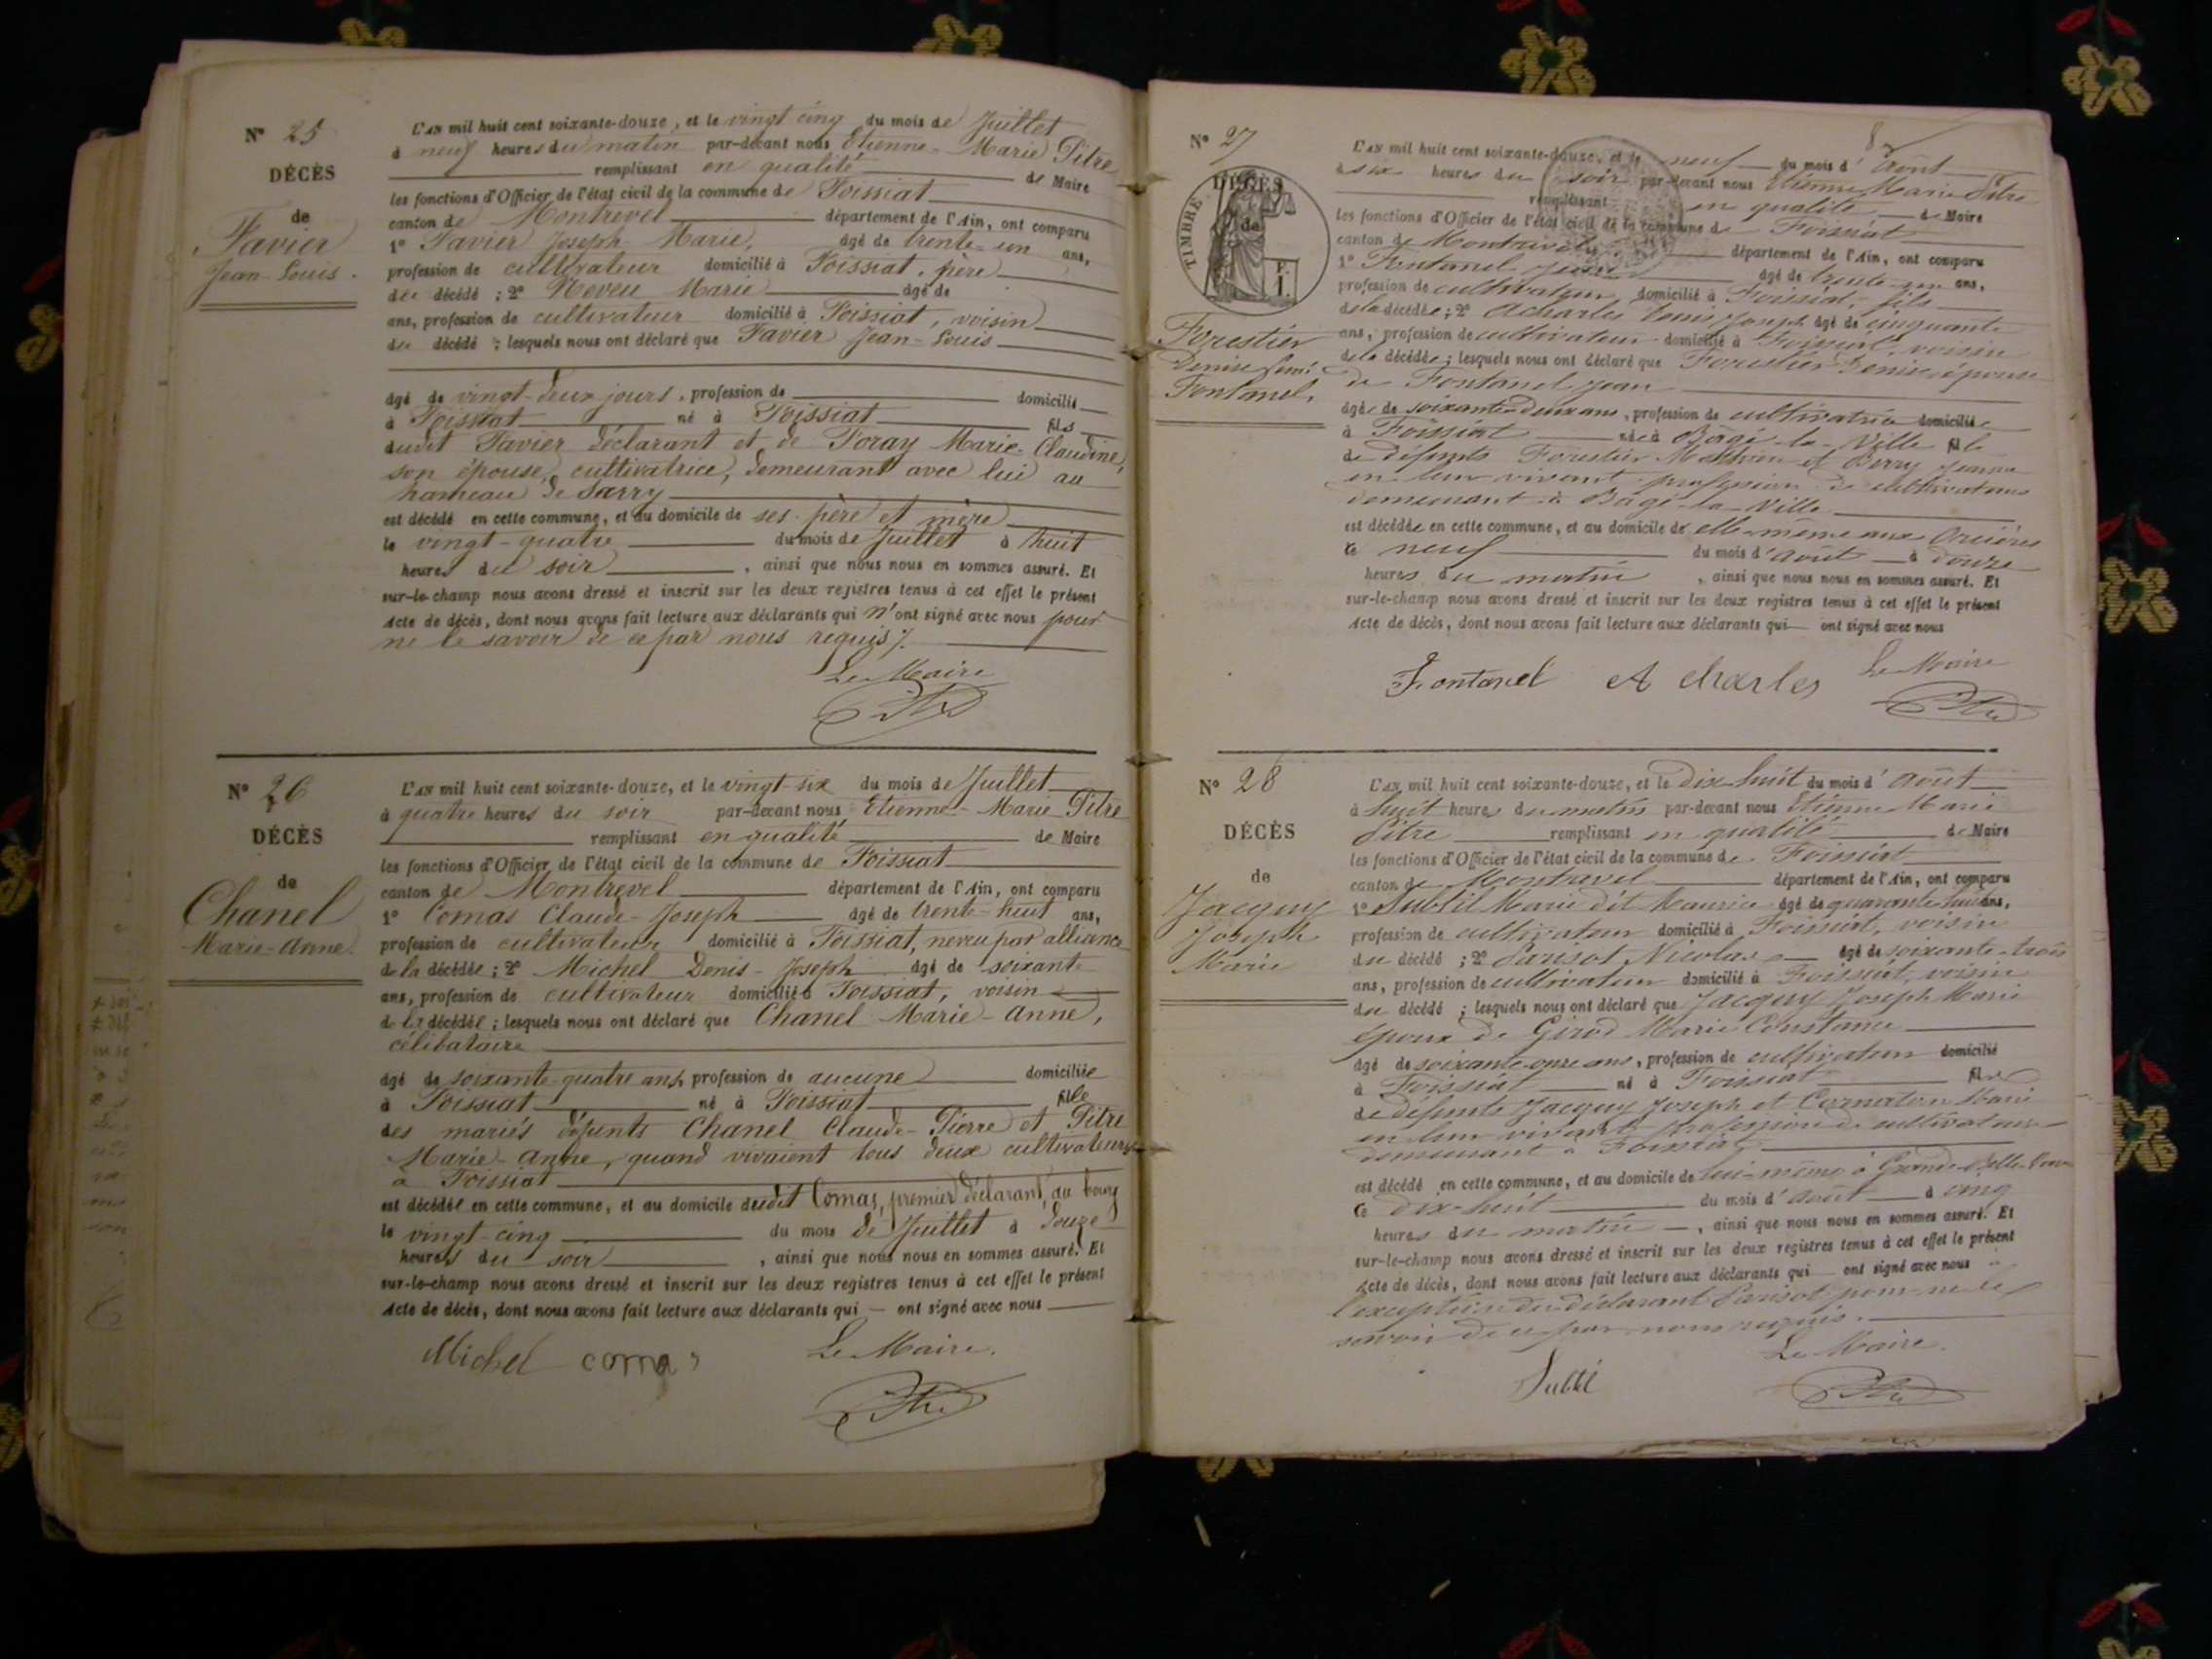 N° 25
DÉCÈS
de
Favier
Jean-Louis.
L'AN mil huit cent soixante-douze, et le vingt cinq du mois de Juillet
à neuf heures du matin par-devant nous Etienne-Marie Pitre
remplissant en qualité de Maire
les fonctions d'Officier de l'état civil de la commune de Foissiat
canton de Montrevel département de l'Ain, ont comparu
1° Favier Joseph-Marie, âgé de trente-un ans,
profession de cultivateur domicilié à Foissiat, père
du décédé ; 2° Neveu Marie âgé de
ans, profession de cultivateur domicilié à Foissiat, voisin
du décédé ; lesquels nous ont déclaré que Favier Jean-Louis
âgé de vingt-deux jours, profession de domicilié
à Foissiat né à Foissiat fils
dudit Favier déclarant et de Foray Marie-Claudine,
son épouse, cultivatrice, demeurant avec lui au
hameau de Sarry
est décédé en cette commune, et au domicile de ses père et mère
le vingt-quatre du mois de Juillet à huit
heures du soir, ainsi que nous nous en sommes assuré. Et
sur-le-champ nous avons dressé et inscrit sur les deux registres tenus à cet effet le présent
Acte de décès, dont nous avons fait lecture aux déclarants qui n'ont signé avec nous pour
ne le savoir de ce par nous requis.
Le Maire
Pitre
N° 26
DÉCÈS
de
Chanel
Marie-Anne.
L'AN mil huit cent soixante-douze, et le vingt-six du mois de Juillet
à quatre heures du soir par-devant nous Etienne-Marie Pitre
remplissant en qualité de Maire
les fonctions d'Officier de l'état civil de la commune de Foissiat
canton de Montrevel département de l'Ain, ont comparu
1° Comas Claude-Joseph âgé de trente-huit ans,
profession de cultivateur domicilié à Foissiat, neveu par alliance
de la décédée ; 2° Michel Denis-Joseph âgé de soixante
ans, profession de cultivateur domicilié à Foissiat, voisin
de la décédée ; lesquels nous ont déclaré que Chanel Marie-Anne,
célibataire
âgé de soixante-quatre ans, profession de aucune domiciliée
à Foissiat né à Foissiat fille
des mariés défunts Chanel Claude-Pierre et Pitre
Marie-Anne, quand vivaient tous deux cultivateurs
à Foissiat
est décédée en cette commune, et au domicile dudit Comas, premier déclarant, au bourg
le vingt-cinq du mois de Juillet à douze
heures du soir, ainsi que nous nous en sommes assuré. Et
sur-le-champ nous avons dressé et inscrit sur les deux registres tenus à cet effet le présent
Acte de décès, dont nous avons fait lecture aux déclarants qui — ont signé avec nous
Michel comas Le Maire.
Pitre
N° 27
DÉCÈS
TIMBRE
de
F.
1.
Forestier
Denise fem:
Fontanel.
L'AN mil huit cent soixante-douze, et le neuf du mois d'Août
à six heures du soir par-devant nous Etienne Marie Pitre
remplissant en qualité de Maire
les fonctions d'Officier de l'état civil de la commune de Foissiat
canton de Montrevel département de l'Ain, ont comparu
1° Fontanel Jean âgé de trente-un ans,
profession de cultivateur domicilié à Foissiat, fils
de la décédée ; 2° Acharles Denis Joseph âgé de cinquante
ans, profession de cultivateur domicilié à Foissiat, voisin
de la décédée ; lesquels nous ont déclaré que Forestier Denise épouse
de Fontanel Jean
âgée de soixante-deux ans, profession de cultivatrice domiciliée
à Foissiat née à Bâgé-la-Ville file
de défunts Forestier Mathieu et Berry Jeanne
en leur vivant profession de cultivateurs
demeurant à Bâgé-la-Ville
est décédée en cette commune, et au domicile de elle-même aux Orcières
ce neuf du mois d'août à douze
heures du matin, ainsi que nous nous en sommes assuré. Et
sur-le-champ nous avons dressé et inscrit sur les deux registres tenus à cet effet le présent
Acte de décès, dont nous avons fait lecture aux déclarants qui — ont signé avec nous
Fontanel A charles Le Maire
Pitre
N° 28
DÉCÈS
de
Jacquy
Joseph
Marie
L'AN mil huit cent soixante-douze, et le dix-huit du mois d'Août
à huit heures du matin par-devant nous Etienne Marie
Pitre remplissant en qualité de Maire
les fonctions d'Officier de l'état civil de la commune de Foissiat
canton de Montrevel département de l'Ain, ont comparu
1° Subtil Marie dit Maurice âgé de quarante huit ans,
profession de cultivateur domicilié à Foissiat, voisin
du décédé ; 2° Parisot Nicolas âgé de soixante-trois
ans, profession de cultivateur domicilié à Foissiat, voisin
du décédé ; lesquels nous ont déclaré que Jacquy Joseph Marie
époux de Girod Marie Constance
âgé de soixante-onze ans, profession de cultivateur domicilié
à Foissiat né à Foissiat fils
de défunts Jacquy Joseph et Cornaton Marie
en leur vivant profession de cultivateurs
demeurant à Foissiat
est décédé en cette commune, et au domicile de lui-même à Grande
ce dix-huit du mois d'août à cinq
heures du matin, ainsi que nous nous en sommes assuré. Et
sur-le-champ nous avons dressé et inscrit sur les deux registres tenus à cet effet le présent
Acte de décès, dont nous avons fait lecture aux déclarants qui ont signé avec nous à
l'exception du déclarant Parisot pour ne le
savoir de ce par nous requis.
Le Maire.
Subtil
Pitre